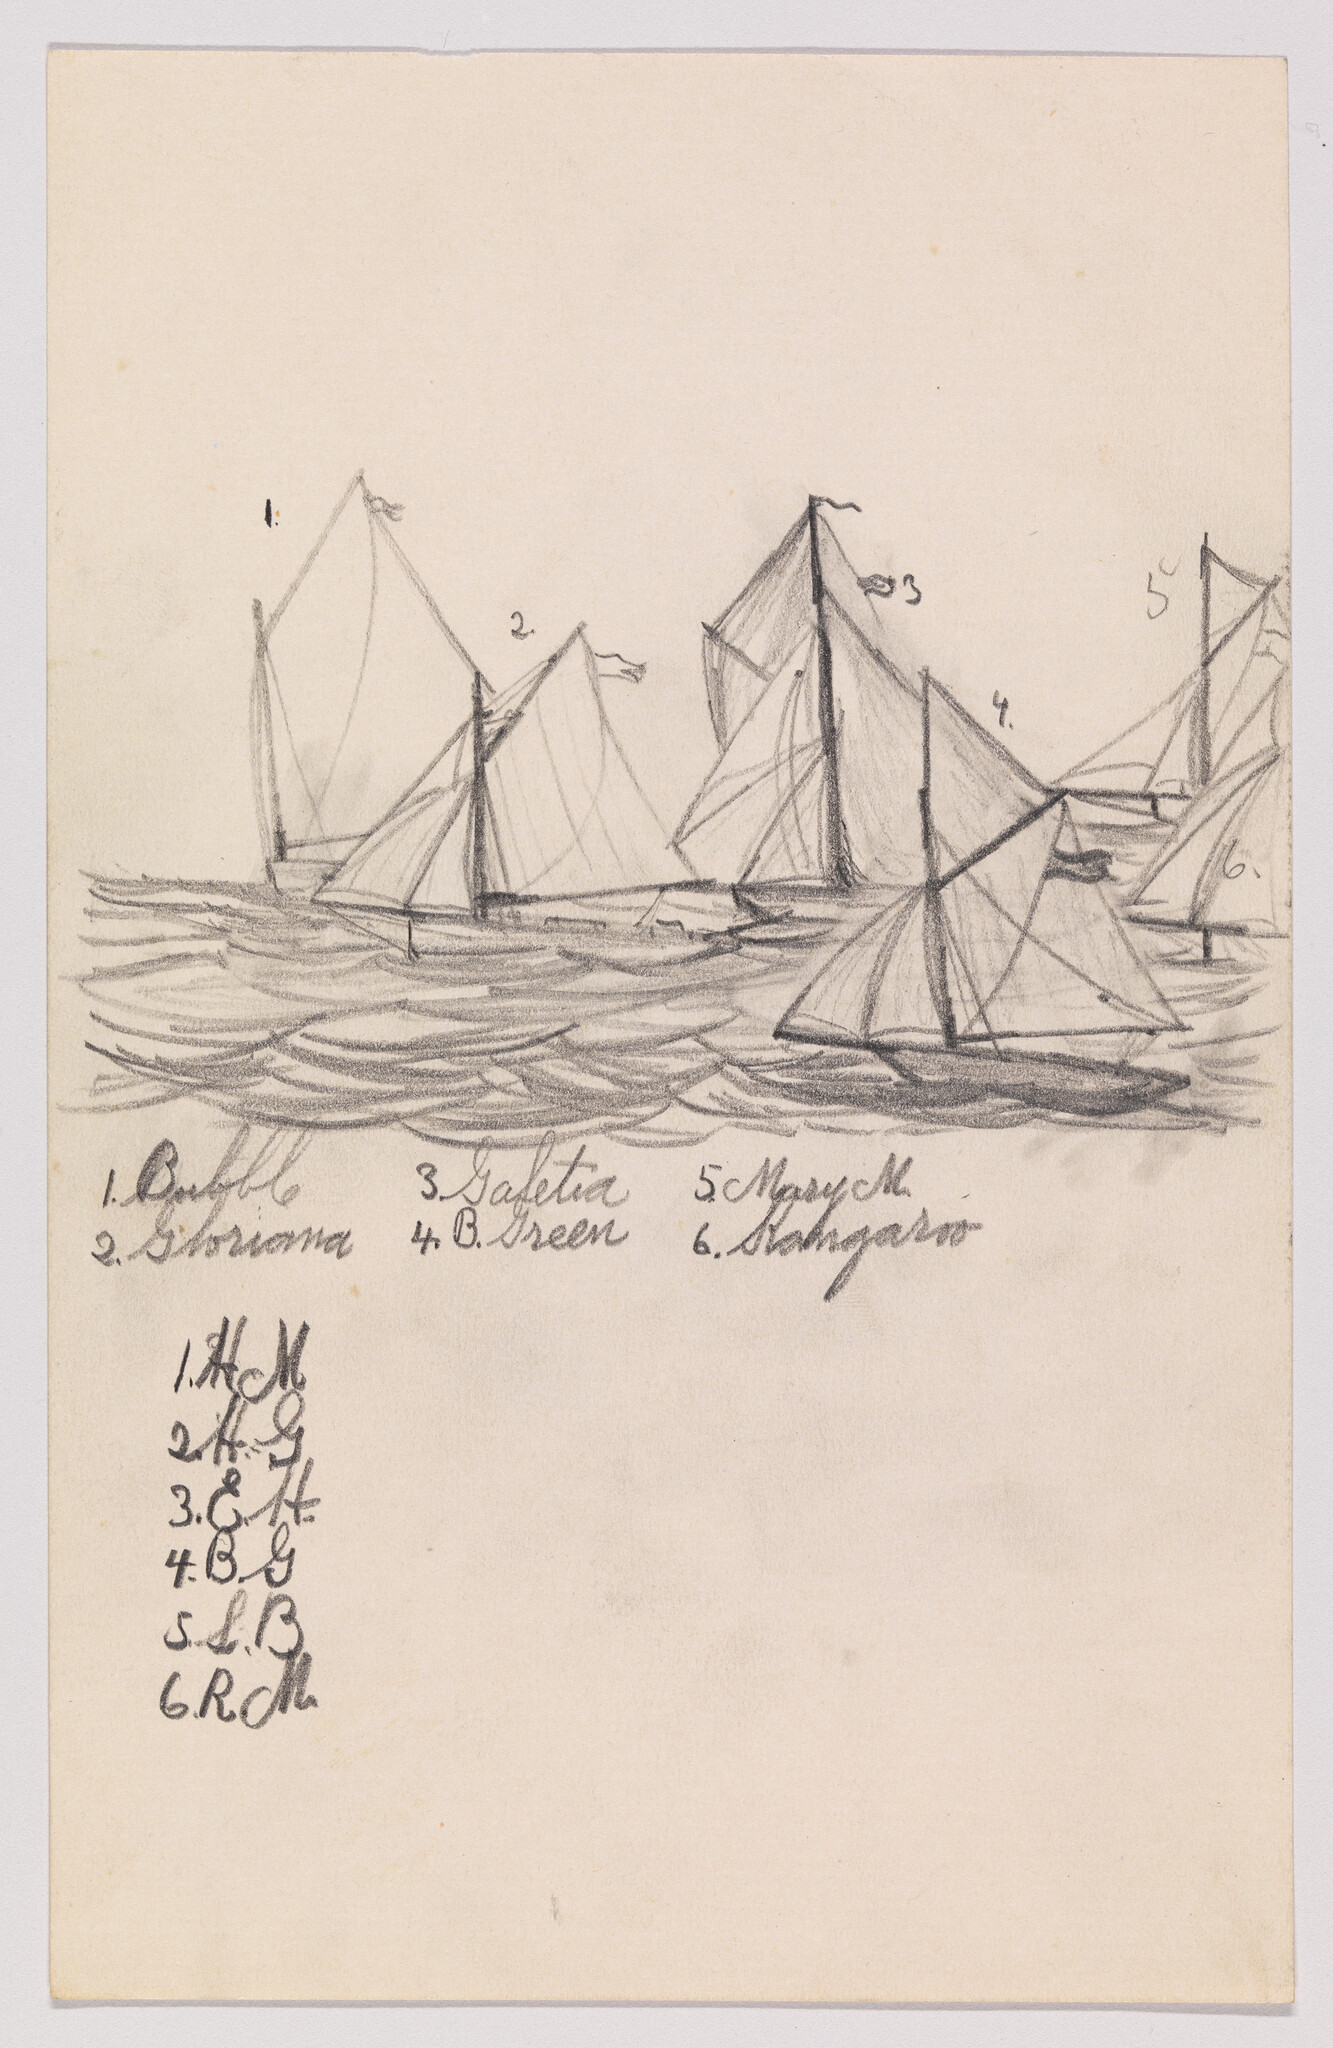 1.
2.
3
4.
5
6.
1. Bubble 3. Galetia 5. Mary M.
2. Gloriana 4. B. Green 6. Kangaroo
1. H M
2. H. G
3. E. H.
4. B. G
5. L. B
6. R. M.